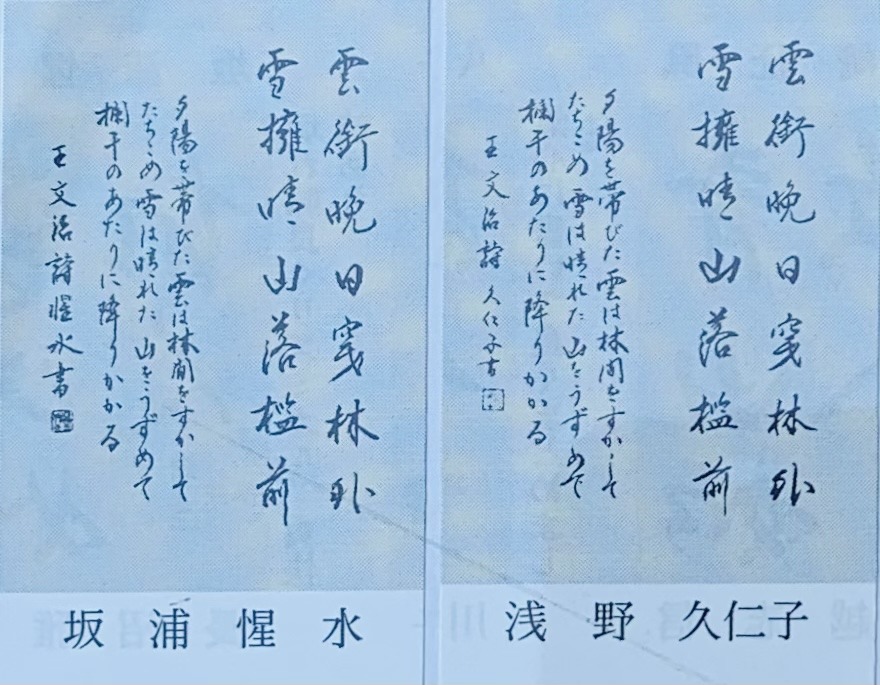 雲銜晩日穿林外
雪擁晴山落檻前
夕陽を帯びた雲は林間をすかして
たちこめ雪は晴れた山をうずめて
欄干のあたりに降りかかる
王文治詩惺水書
坂浦惺水
雲銜晩日穿林外
雪擁晴山落檻前
夕陽を帯びた雲は林間をすかして
たちこめ雪は晴れた山をうずめて
欄干のあたりに降りかかる
王文治詩 久仁子書
浅野久仁子